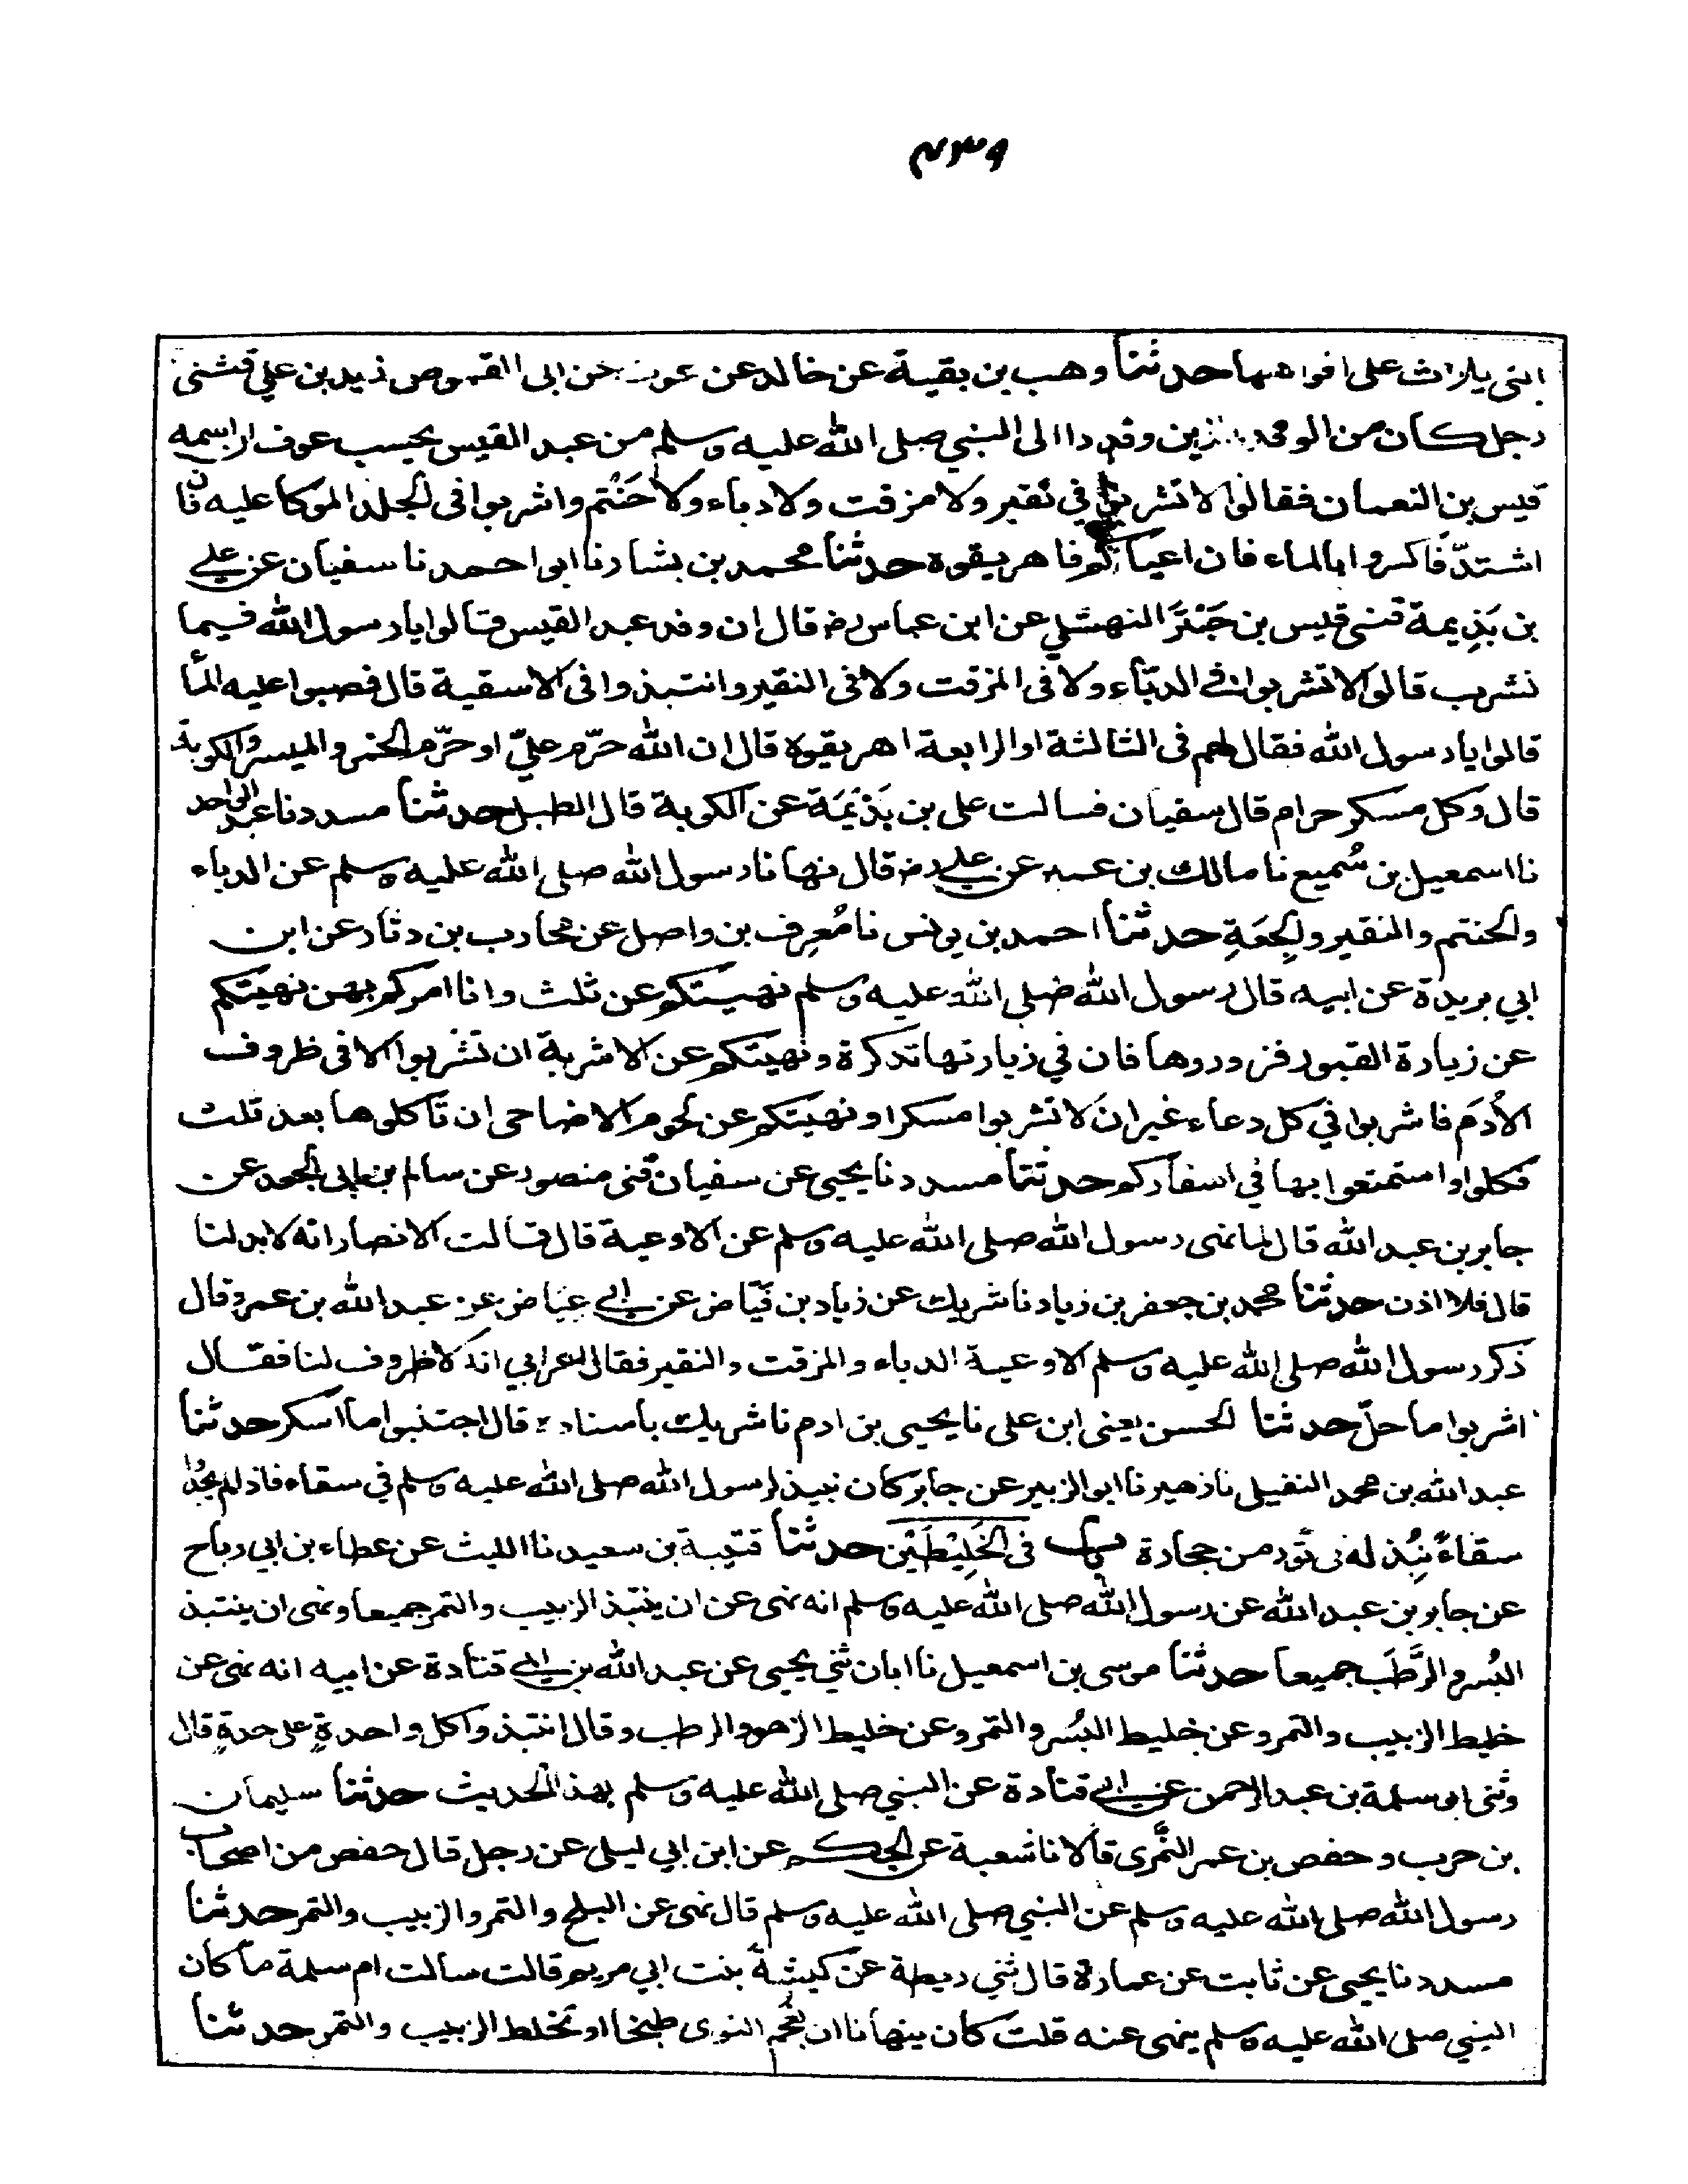 ۴۳۹
التى يلاث على افواهها حدثنا وهب بن بقية عن خالد عن عوف عن ابى القموص زيد بن علي قثنى
رجل كان من الوفد الذين وفدوا الى النبي صلى الله عليه وسلم من عبد القيس يحسب عوف ان اسمه
قيس بن النعمان فقالوا لا تشربوا في نقير ولا مزفت ولا دباء ولا حَنْتم واشربوا فى الجلد الموكا عليه فان
اشتدّ فاكسروا بالماء فان اعياكم فاهريقوه حدثنا محمد بن بشار نا ابو احمد نا سفيان عن علي
بن بَذِيمة قثنى قيس بن حَبْتَر النهشلي عن ابن عباس رض قال ان وفد عبد القيس قالوا يا رسول الله فيما
نشرب قالوا لا تشربوا فى الدبّاء ولا فى المزفت ولا فى النقير وانتبذوا فى الاسقية قال فصبوا عليه الماء
قالوا يا رسول الله فقال لهم فى الثالثة او الرابعة اهريقوه قال ان الله حرّم عليّ او حرّم الخمر والميسر والكوبة
قال وكل مسكر حرام قال سفيان فسالت على بن بَذِيمَة عن الكوبة قال الطبل حدثنا مسدد نا عبد الواحد
نا اسمعيل بن سُميع نا مالك بن عمير عن علي رض قال نهانا رسول الله صلى الله عليه وسلم عن الدباء
والحنتم والنقير والجِعَةِ حدثنا احمد بن يونس نا مُعرِف بن واصل عن محارب بن دثار عن ابن
ابي بريدة عن ابيه قال رسول الله صلى الله عليه وسلم نهيتكم عن ثلث وانا امركم بهن نهيتكم
عن زيارة القبور فزوروها فان في زيارتها تذكرة ونهيتكم عن الاشربة ان تشربوا الا فى ظروف
الأدَم فاشربوا في كل وعاء غير ان لا تشربوا مسكرا ونهيتكم عن لحوم الاضاحى ان تاكلوها بعد ثلث
فكلوا واستمتعوا بها في اسفاركم حدثنا مسدد نا يحيى عن سفيان قثنى منصور عن سالم بن ابى الجعد عن
جابر بن عبد الله قال لما نهى رسول الله صلى الله عليه وسلم عن الاوعية قال قالت الانصار انه لا بد لنا
قال فلا اذن حدثنا محمد بن جعفر بن زياد نا شريك عن زياد بن فَيّاض عن ابي عياض عن عبد الله بن عمرو قال
ذكر رسول الله صلى الله عليه وسلم الاوعية الدباء والمزفت والنقير فقال اعرابي انه لا ظروف لنا فقال
اشربوا ما حلّ حدثنا الحسن يعنى ابن على نا يحيى بن ادم نا شريك باسناده قال اجتنبوا ما اسكر حدثنا
عبد الله بن محمد النفيلى نا زهير نا ابو الزبير عن جابر كان نبيذ لرسول الله صلى الله عليه وسلم في سقاء فاذ لم يجدوا
سقاءً نُبِذ له فى تَور من حجارة باب فى الخَلِيْطَيْن حدثنا قتيبة بن سعيد نا الليث عن عطاء بن ابي رباح
عن جابر بن عبد الله عن رسول الله صلى الله عليه وسلم انه نهى عن ان ينتبذ الزبيب والتمر جميعا ونهى ان ينتبذ
البُسر والرُّطَب جميعا حدثنا موسى بن اسمعيل نا ابان ثني يحيى عن عبد الله بن ابي قتادة عن ابيه انه نهى عن
خليط الزبيب والتمر وعن خليط البُسر والتمر وعن خليط الزهو والرطب وقال انتبذوا كل واحدةٍ على حدةٍ قال
وثنى ابو سلمة بن عبد الرحمن عن ابي قتادة عن النبي صلى الله عليه وسلم بهذا الحديث حدثنا سليمان
بن حرب وحفص بن عمر النَّمَرى قالا نا شعبة عن الحكم عن ابن ابي ليلى عن رجل قال حفص من اصحاب
رسول الله صلى الله عليه وسلم عن النبي صلى الله عليه وسلم قال نهى عن البلح والتمر والزبيب والتمر حدثنا
مسدد نا يحيى عن ثابت عن عمارة قال ثني ريطة عن كبشة بنت ابي مريم قالت سالت ام سلمة ما كان
النبي صلى الله عليه وسلم ينهى عنه قلت كان ينهانا ان نَعْجُم النوى طبخا او نخلط الزبيب والتمر حدثنا